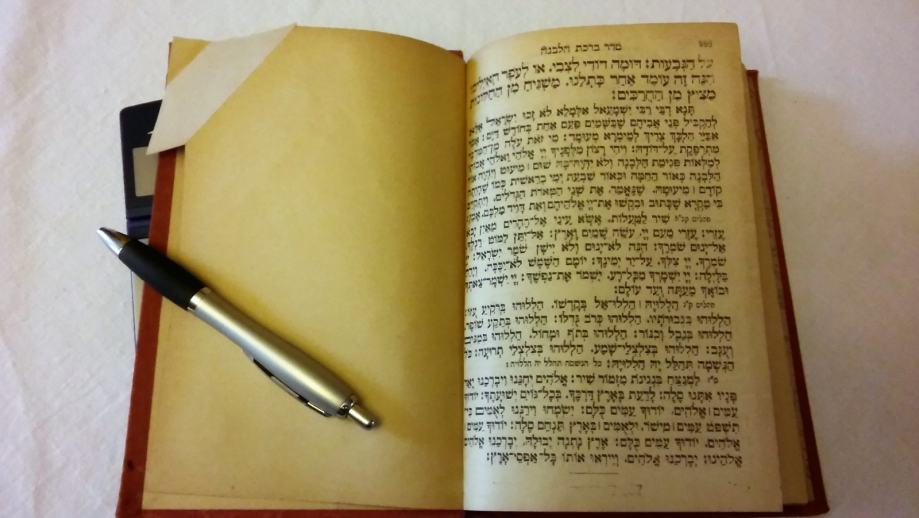 סדר ברכת הלבנה
על הַגְּבָעוֹת: דּוֹמֶה דוֹדִי לִצְבִי, אוֹ לְעֹפֶר הָאַיָּלִים
הִנֵּה זֶה עוֹמֵד אַחַר כָּתְלֵנוּ, מַשְׁגִּיחַ מִן הַחַלּוֹנוֹת
מֵצִיץ מִן הַחֲרַכִּים:
תָּנָא דְּבֵי רַבִּי יִשְׁמָעֵאל אִלְמָלֵא לֹא זָכוּ יִשְׂרָאֵל אֶלָּא
לְהַקְבִּיל פְּנֵי אֲבִיהֶם שֶׁבַּשָּׁמַיִם פַּעַם אַחַת בַּחוֹדֶשׁ דַּיָּם: אָמַר
אַבַּיֵּי הִלְכָּךְ צָרִיךְ לְמֵימְרָא מְעוּמָּד: מִי זֹאת עֹלָה מִן־הַמִּדְבָּר
מִתְרַפֶּקֶת עַל־דּוֹדָהּ: וִיהִי רָצוֹן מִלְּפָנֶיךָ יְיָ אֱלֹהַי וֵאלֹהֵי אֲבוֹתַי
לְמַלֹּאת פְּגִימַת הַלְּבָנָה וְלֹא יִהְיֶה־בָּהּ שׁוּם מִיעוּט וִיהִי אוֹר
הַלְּבָנָה כְּאוֹר הַחַמָּה וּכְאוֹר שִׁבְעַת יְמֵי בְרֵאשִׁית כְּמוֹ שֶׁהָיְתָה
קוֹדֶם מִיעוּטָהּ, שֶׁנֶּאֱמַר, אֶת שְׁנֵי הַמְּאֹרֹת הַגְּדֹלִים, וְיִתְקַיֵּם
בִּי מִקְרָא שֶׁכָּתוּב וּבִקְשׁוּ אֶת־יְיָ אֱלֹהֵיהֶם וְאֵת דָּוִיד מַלְכָּם, אָמֵן:
תהלים קכ"א שִׁיר לַמַּעֲלוֹת, אֶשָּׂא עֵינַי אֶל־הֶהָרִים מֵאַיִן יָבֹא
עֶזְרִי: עֶזְרִי מֵעִם יְיָ, עֹשֵׂה שָׁמַיִם וָאָרֶץ: אַל־יִתֵּן לַמּוֹט רַגְלֶךָ
אַל־יָנוּם שֹׁמְרֶךָ: הִנֵּה לֹא־יָנוּם וְלֹא יִישָׁן שׁוֹמֵר יִשְׂרָאֵל: יְיָ
שֹׁמְרֶךָ, יְיָ צִלְּךָ, עַל־יַד יְמִינֶךָ: יוֹמָם הַשֶּׁמֶשׁ לֹא־יַכֶּכָּה, וְיָרֵחַ
בַּלָּיְלָה: יְיָ יִשְׁמָרְךָ מִכָּל־רָע, יִשְׁמֹר אֶת־נַפְשֶׁךָ: יְיָ יִשְׁמָר־צֵאתְךָ
וּבוֹאֶךָ מֵעַתָּה וְעַד עוֹלָם:
תהלים ק"נ הַלְלוּיָהּ הַלְלוּ־אֵל בְּקָדְשׁוֹ, הַלְלוּהוּ בִּרְקִיעַ עֻזּוֹ:
הַלְלוּהוּ בִגְבוּרֹתָיו, הַלְלוּהוּ כְּרֹב גֻּדְלוֹ: הַלְלוּהוּ בְּתֵקַע שׁוֹפָר,
הַלְלוּהוּ בְּנֵבֶל וְכִנּוֹר: הַלְלוּהוּ בְתֹף וּמָחוֹל, הַלְלוּהוּ בְּמִנִּים
וְעֻגָב: הַלְלוּהוּ בְצִלְצְלֵי־שָׁמַע, הַלְלוּהוּ בְּצִלְצְלֵי תְרוּעָה: כֹּל
הַנְּשָׁמָה תְּהַלֵּל יָהּ הַלְלוּיָהּ: כל הנשמה תהלל יה הללויה:
ס"ז לַמְנַצֵּחַ בִּנְגִינֹת מִזְמוֹר שִׁיר: אֱלֹהִים יְחָנֵּנוּ וִיבָרְכֵנוּ יָאֵר
פָּנָיו אִתָּנוּ סֶלָה: לָדַעַת בָּאָרֶץ דַּרְכֶּךָ, בְּכָל־גּוֹיִם יְשׁוּעָתֶךָ: יוֹדוּךָ
עַמִּים אֱלֹהִים, יוֹדוּךָ עַמִּים כֻּלָּם: יִשְׂמְחוּ וִירַנְּנוּ לְאֻמִּים כִּי
תִשְׁפֹּט עַמִּים מִישֹׁר, וּלְאֻמִּים בָּאָרֶץ תַּנְחֵם סֶלָה: יוֹדוּךָ עַמִּים
אֱלֹהִים, יוֹדוּךָ עַמִּים כֻּלָּם: אֶרֶץ נָתְנָה יְבוּלָהּ, יְבָרְכֵנוּ אֱלֹהִים
אֱלֹהֵינוּ: יְבָרְכֵנוּ אֱלֹהִים, וְיִירְאוּ אוֹתוֹ כָּל־אַפְסֵי־אָרֶץ: